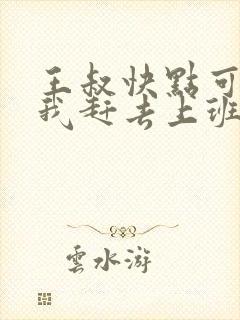 王叔快點可
我赶去上班
雲水游